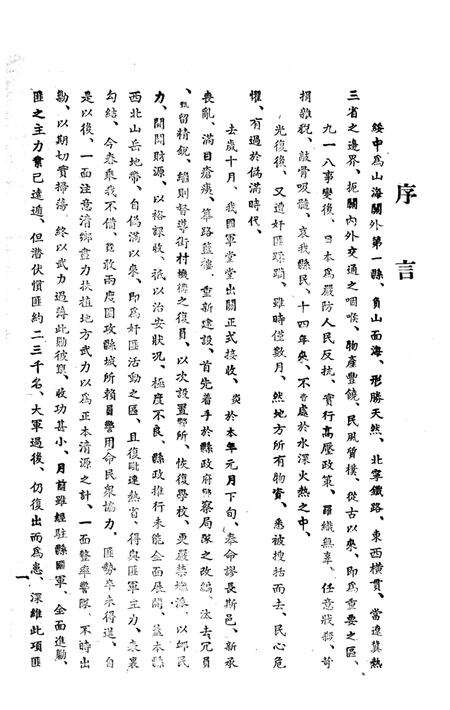 序言
綏中為山海關外第一縣、負山面海、形勝天然、北寧鐵路、東西橫貫、當遼冀熱
三省之邊界、扼關內外交通之咽喉、物產豐饒、民風質樸、從古以來、即為重要之區、
九一八事變後、日本為嚴防人民反抗、實行高壓政策、羅織無辜、任意戕殺、苛
捐雜稅、敲骨吸髓、哀我縣民、十四年來、不啻處於水深火熱之中、
光復後、又遭奸匪蹂躪、雖時僅數月、然地方所有物資、悉被搜括而去、民心危
懼、有過於偽滿時代、
去歲十月、我國軍堂堂出關正式接收、炎於本年元月下旬、奉命謬長斯邑、新承
喪亂、滿目瘡痍、篳路藍縷、重新建設、首先着手於縣政府警察局隊之改編、汰去冗員
、甄留精銳、繼則督導街村機構之復員、以次設置鄉所、恢復學校、更嚴禁煙賭、以卹民
力、開闢財源、以裕課收、祇以治安狀況、極度不良、縣政推行未能全面展開、蓋本縣
西北山岳地帶、自偽滿以來、即為奸匪活動之區、且復毗連熱省、得與匪軍主力、表裏
勾結、今春乘我不備、竟敢兩度圍攻縣城所賴員警用命民眾協力、匪勢卒未得逞、自
是以後、一面注意清鄉盡力扶植地方武力以為正本清源之計、一面整率警隊、不時出
勦、以期切實掃蕩、終以武力過薄此勦彼竄、收功甚小、月前雖經駐縣國軍、全面進勦、
匪之主力業已遠遁、但潛伏慣匪約二三千名、大軍過後、仍復出而為患、深維此項匪
一